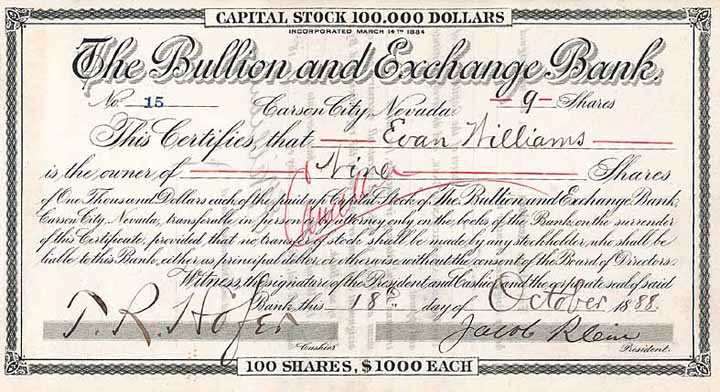 CAPITAL STOCK 100.000 DOLLARS
INCORPORATED MARCH 14TH 1884
The Bullion and Exchange Bank.
No. 15 Carson City, Nevada 9 Shares
This Certifies, that Evan Williams
is the owner of Nine Shares
of One Thousand Dollars each of the paid up Capital Stock of The Bullion and Exchange Bank,
Carson City, Nevada, transferable in person or by attorney only on the books of the Bank, on the surrender
of this Certificate, provided that no transfer of stock shall be made by any stockholder, who shall be
liable to this Bank, either as principal debtor, or otherwise without the consent of the Board of Directors.
Witness, the signature of the President and Cashier and the corporate seal of said
Bank this 18th day of October 1888.
T. R. Hofer Jacob Klein
Cashier President.
100 SHARES, $1000 EACH